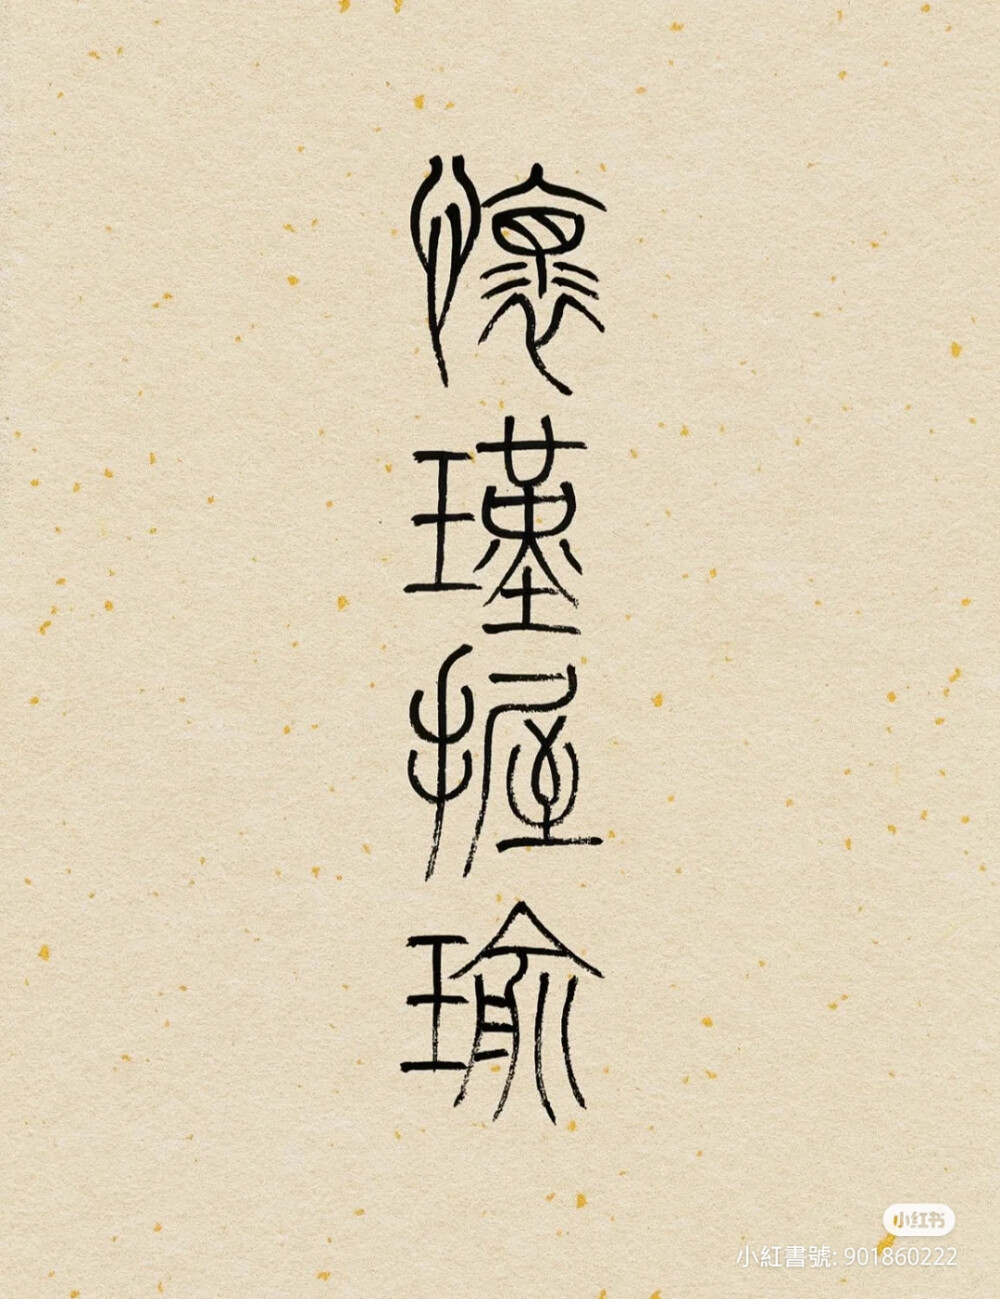 懷瑾握瑜
小红书
小紅書號: 901860222